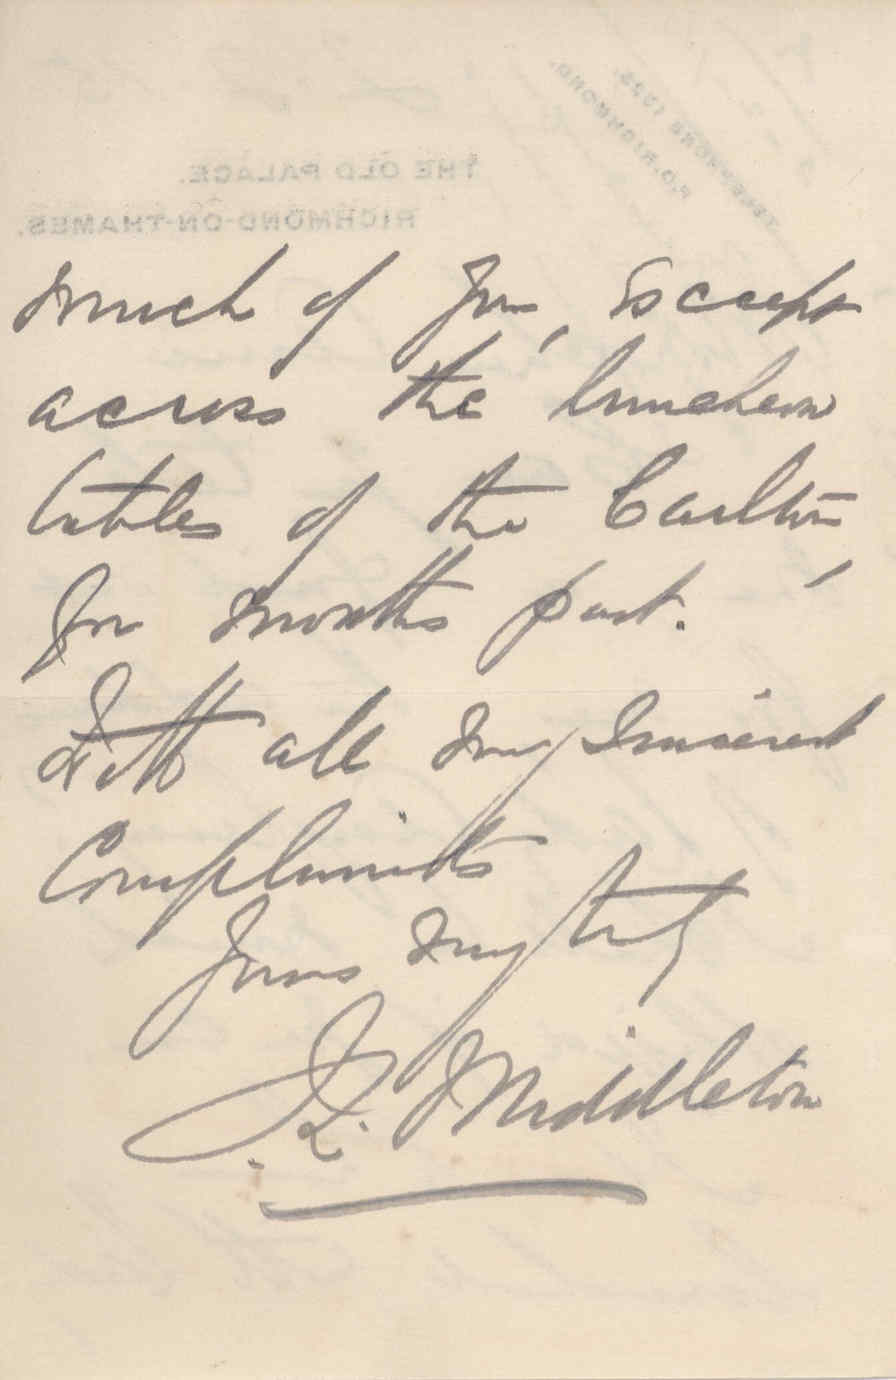 TELEPHONE 1025.
P.O. RICHMOND.
THE OLD PALACE.
RICHMOND-ON-THAMES.
much of you, Except
across the luncheon
tables of the Carlton,
for months past.
With all my sincerest
Compliments
Yours very truly
J. L. Middleton